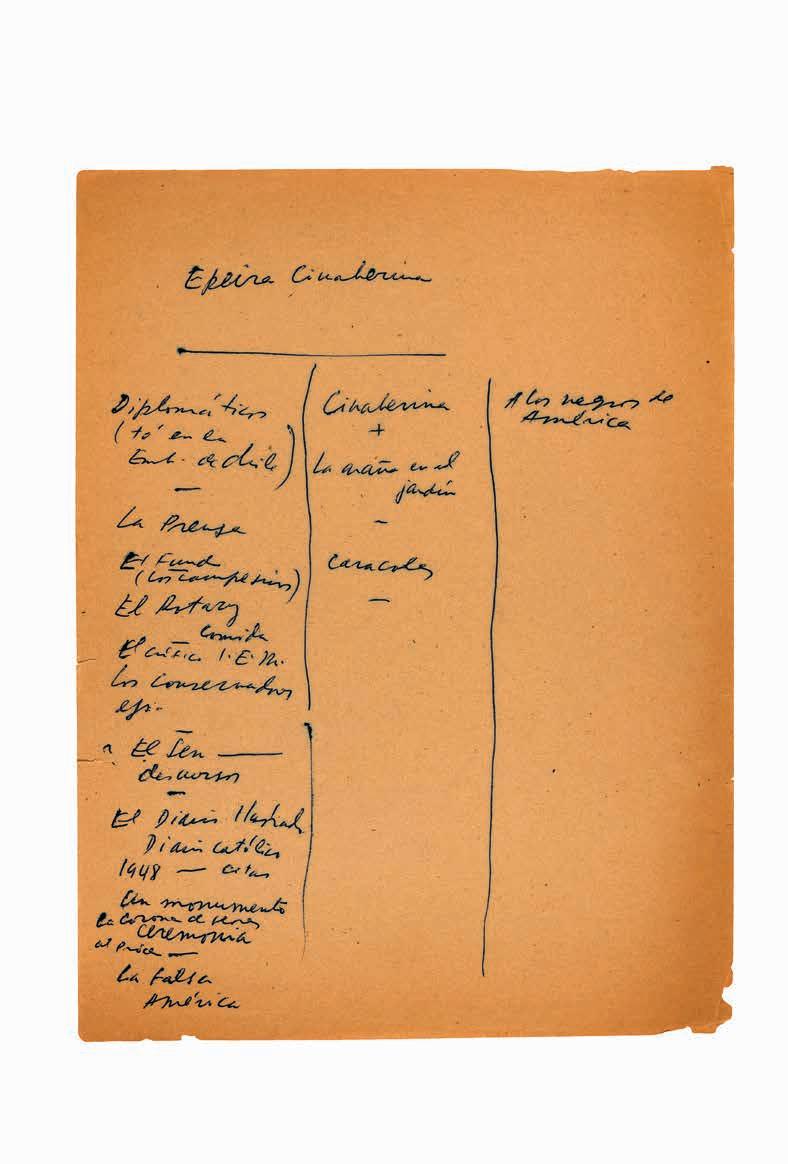 Epeira Cinaberina
Diplomáticos
(té en la
Emb. de Chile)
La Prensa
El Fundo
(los campesinos)
El Rotary
Comida
El crítico I. E. M.
Los conservadores
El Sen
discurso
El Diario Ilustrado
Diario católico
1948 — citas
Un monumento
la corona de flores
Ceremonia
al prócer —
La falsa
América
Cinaberina
+
La araña en el
jardín
Caracoles
A los negros de
América